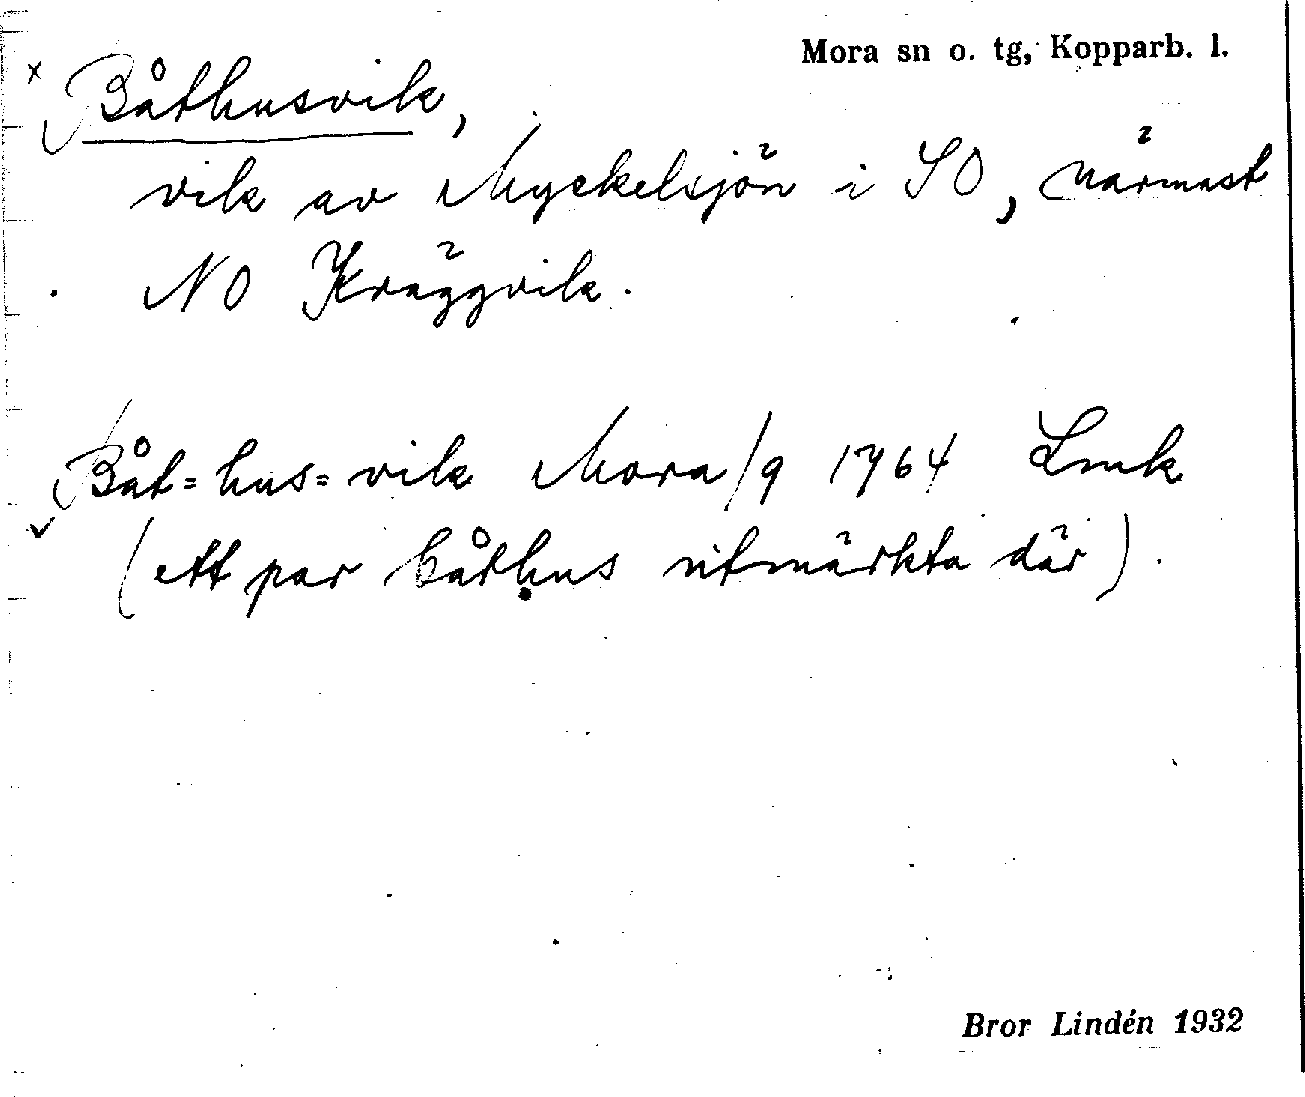 Mora sn o. tg, Kopparb. l.
x Båthusvik,
vik av Myckelsjön i SO, närmast
NO Kräggvik.
Båt=hus=vik Mora/9 1764 Lmk
(ett par båthus utmärkta där).
Bror Lindén 1932